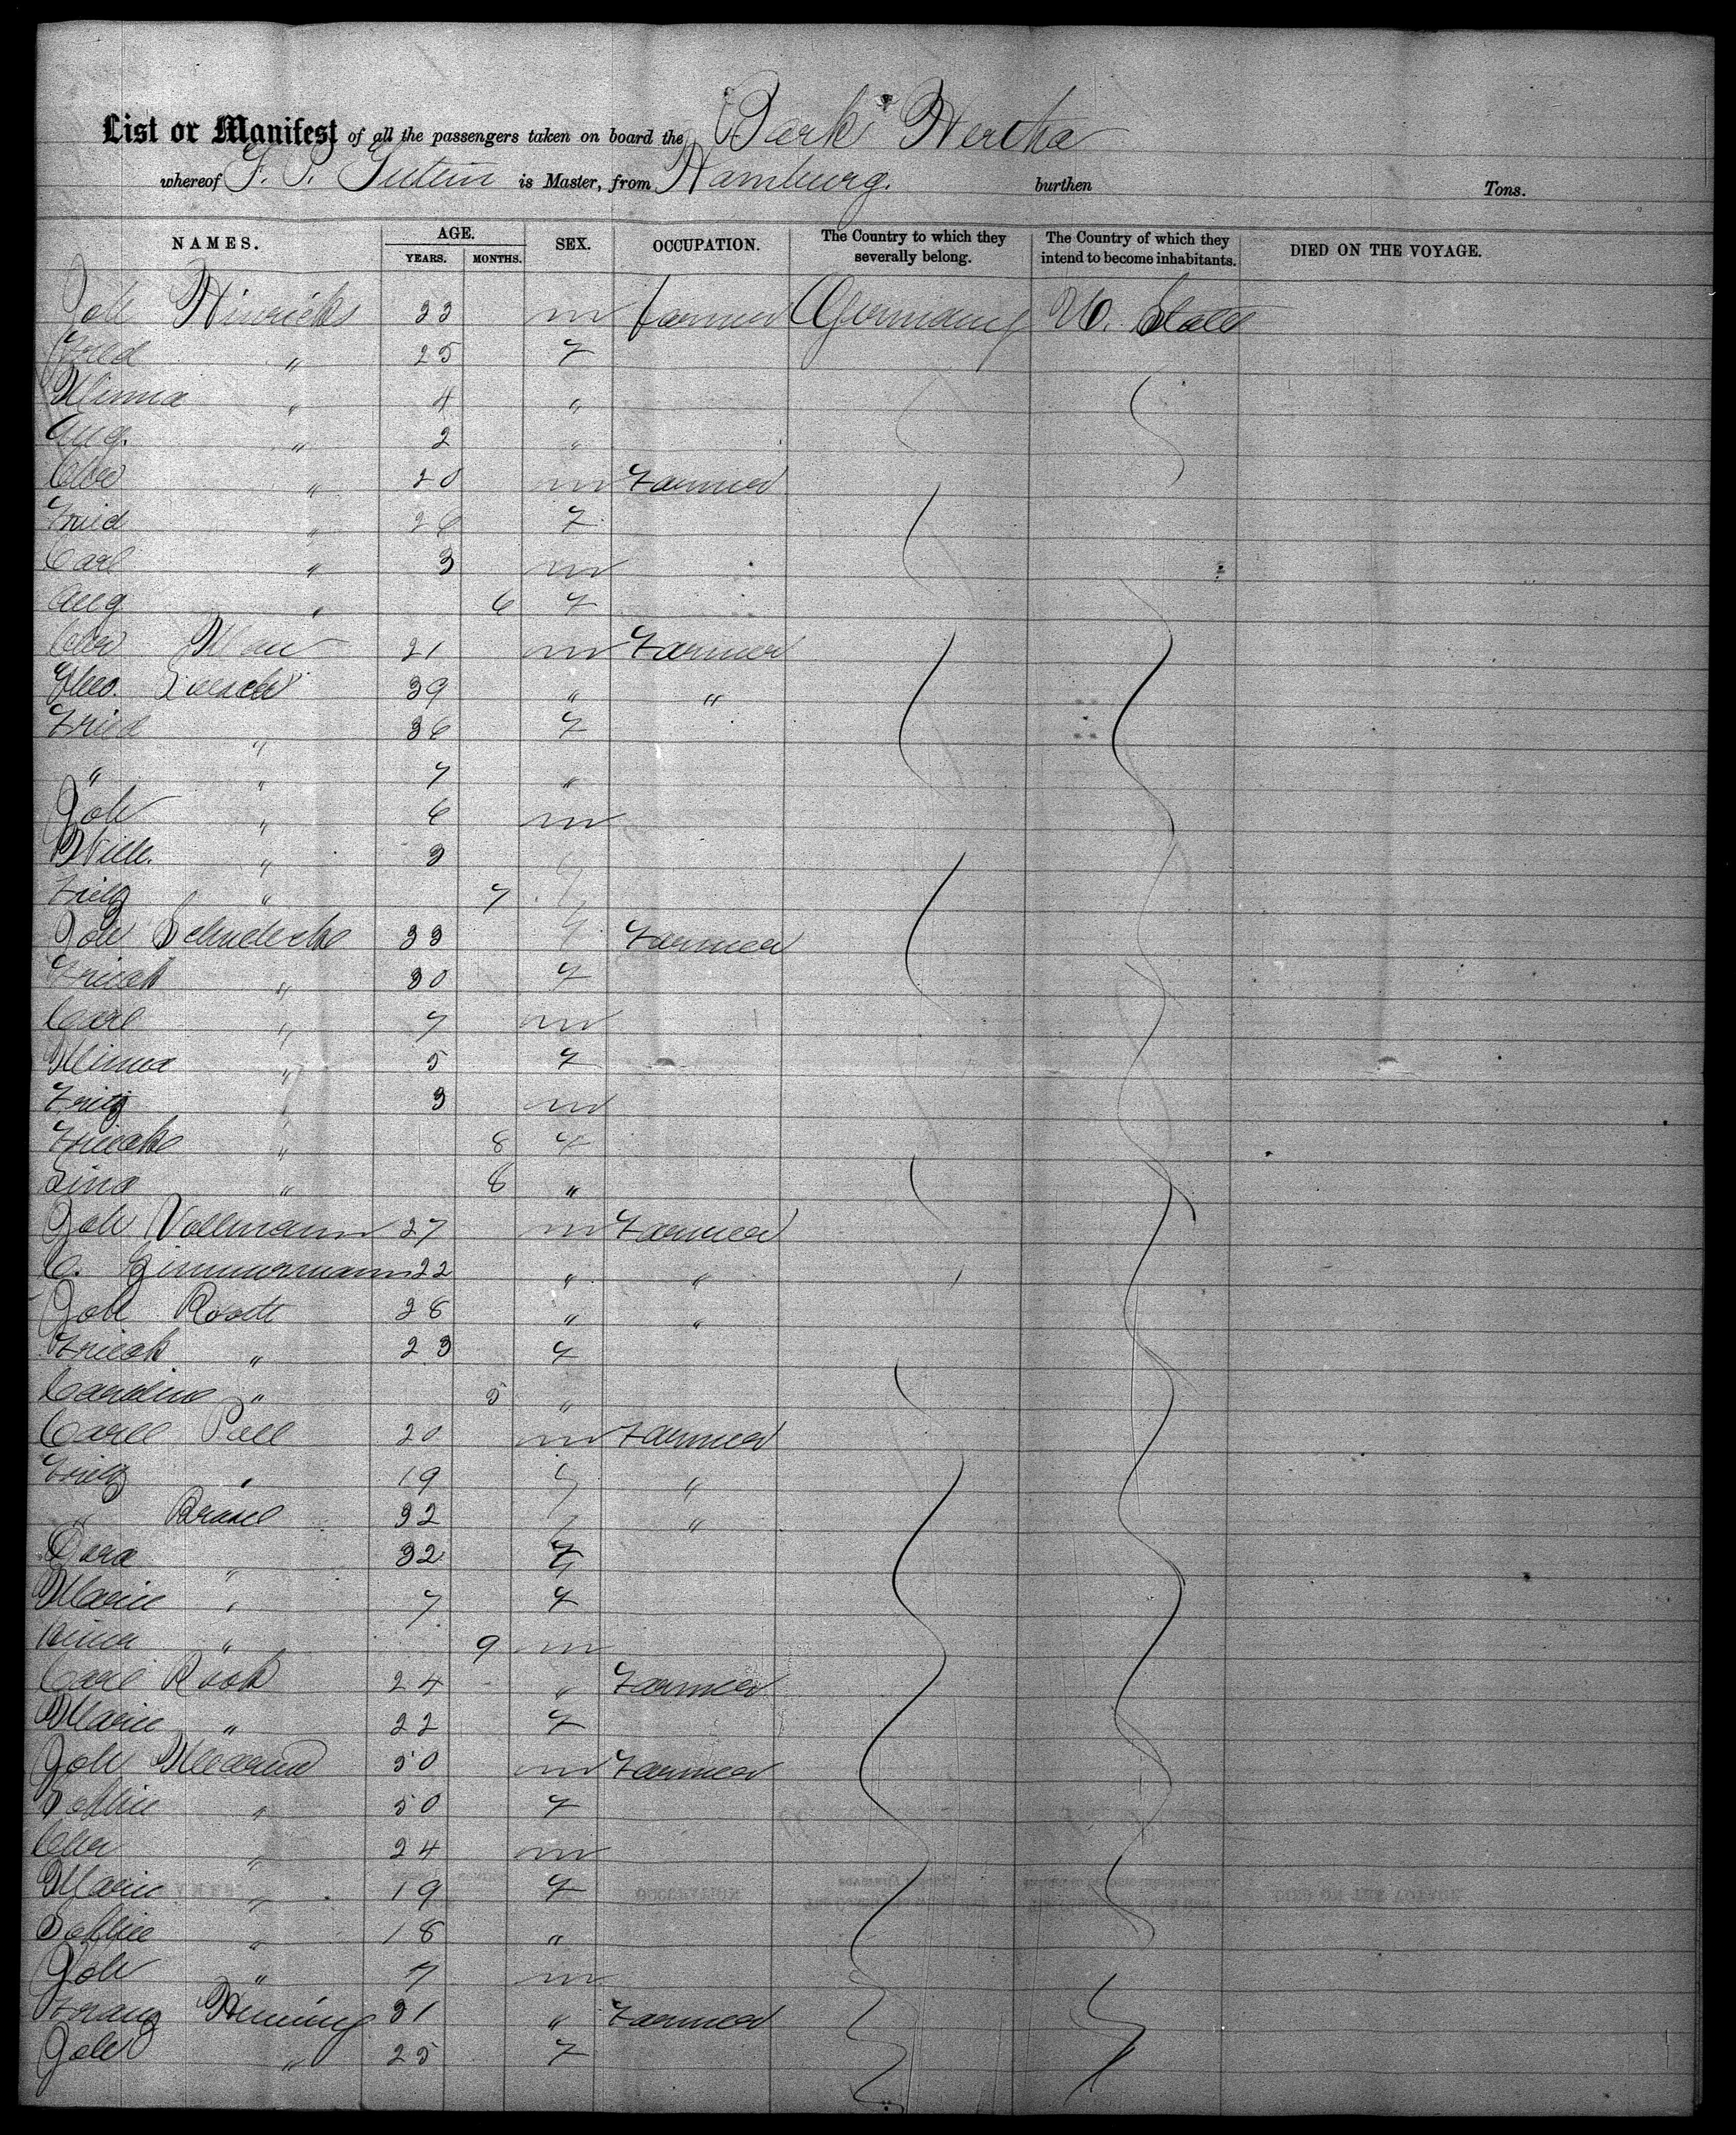 List or Manifest of all the passengers taken on board the Bark Hertha
whereof F. P. is Master, from Hamburg. burthen Tons.
NAMES. AGE. YEARS. MONTHS. SEX. OCCUPATION. The Country to which they severally belong. The Country of which they intend to become inhabitants. DIED ON THE VOYAGE.
Joh Hinrichs 33 m farmer Germany U. States
Fried " 25 f
Minna " 4 "
Aug. " 2 "
Chr " 20 m Farmer
Fried " 26 f
Carl " 3 m
Aug " 6 f
Chr Mau 21 m Farmer
Theo. 39 " "
Fried " 36 f
" " 7 "
Joh " 6 m
Wilh. " 3 "
Fritz " 7 "
Joh 33 " Farmer
Frieck " 30 f
Carl " 7 m
Minna " 5 f
Fritz " 3 m
Friecke " 8 f
Lina " 8 "
Joh Vollmann 27 m Farmer
C. Zimmermann 22 " "
Joh Roode 28 " "
Frieck " 23 f
Caroline " 5 "
Carll Pell 20 m Farmer
Fritz " 19 " "
" Brasel 32 " "
Dora " 32 f
Marie " 7 f
" 9 m
Carl Rook 24 " Farmer
Marie " 22 f
Joh 50 m Farmer
Sophie " 50 f
Chr " 24 m
Marie " 19 f
Sophie " 18 "
Joh " 7 m
Franz Henning 31 " Farmer
Joh " 25 f